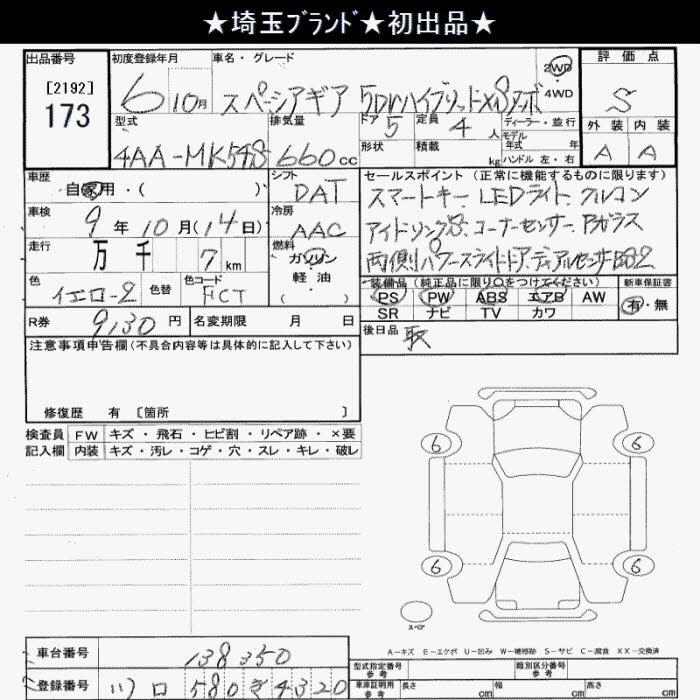 ★埼玉ﾌﾞﾗﾝﾄﾞ★初出品★
出品番号 初度登録年月 車名・グレード 評価点
[2192]
173
6 10月 スペーシアギア 5Drハイブリッド×Sターボ 2WD S
4WD
型式 排気量 ドア 5 定員 4人 ディーラー・並行 外装 内装
モデル年式 年
4AA-MK54S 660cc 形状 積載 kg ハンドル 左・右 A A
車歴 シフト セールスポイント (正常に機能するものに限ります)
自家用・( ) DAT スマートキー、LEDライト、クルコン
車検 9年10月(14日) 冷房 AAC アイドリングS、コーナーセンサー、Pガラス
走行 万 千 7km 燃料 ガソリン 両側パワースライドドア、デュアルセンサーBS2
軽・油
( )
色 イエロー2 色替 色コード 装備品 (純正品に限り○をつけてください) 新車保証書
PS PW ABS エアB AW 有・無
SR ナビ TV カワ
R券 9,130円 名変期限 月 日 後日品 取
注意事項申告欄(不具合内容等は具体的に記入して下さい)
修復歴 有 [箇所 ]
検査員 FW キズ・飛石・ヒビ割・リペア跡・×要
記入欄 内装 キズ・汚レ・コゲ・穴・スレ・キレ・破レ
6 6
6 6
スペア
A-キズ E-エクボ U-凹み W-補修跡 S-サビ C-腐食 XX-交換済
車台番号 138350
型式指定番号 参考 類別区分番号 参考
登録番号 580 4320
車庫証明用 参考 長さ cm 幅 cm 高さ cm